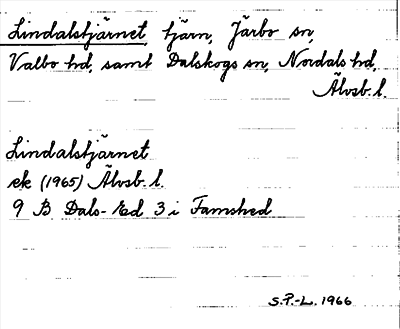 Lindalstjärnet, tjärn, Järbo sn,
Valbo hd, samt Dalskogs sn, Nordals hd,
Älvsb. l.
Lindalstjärnet
ek (1965) Älvsb. l.
9 B Dals-Ed 3 i Famshed
S.P.-L. 1966